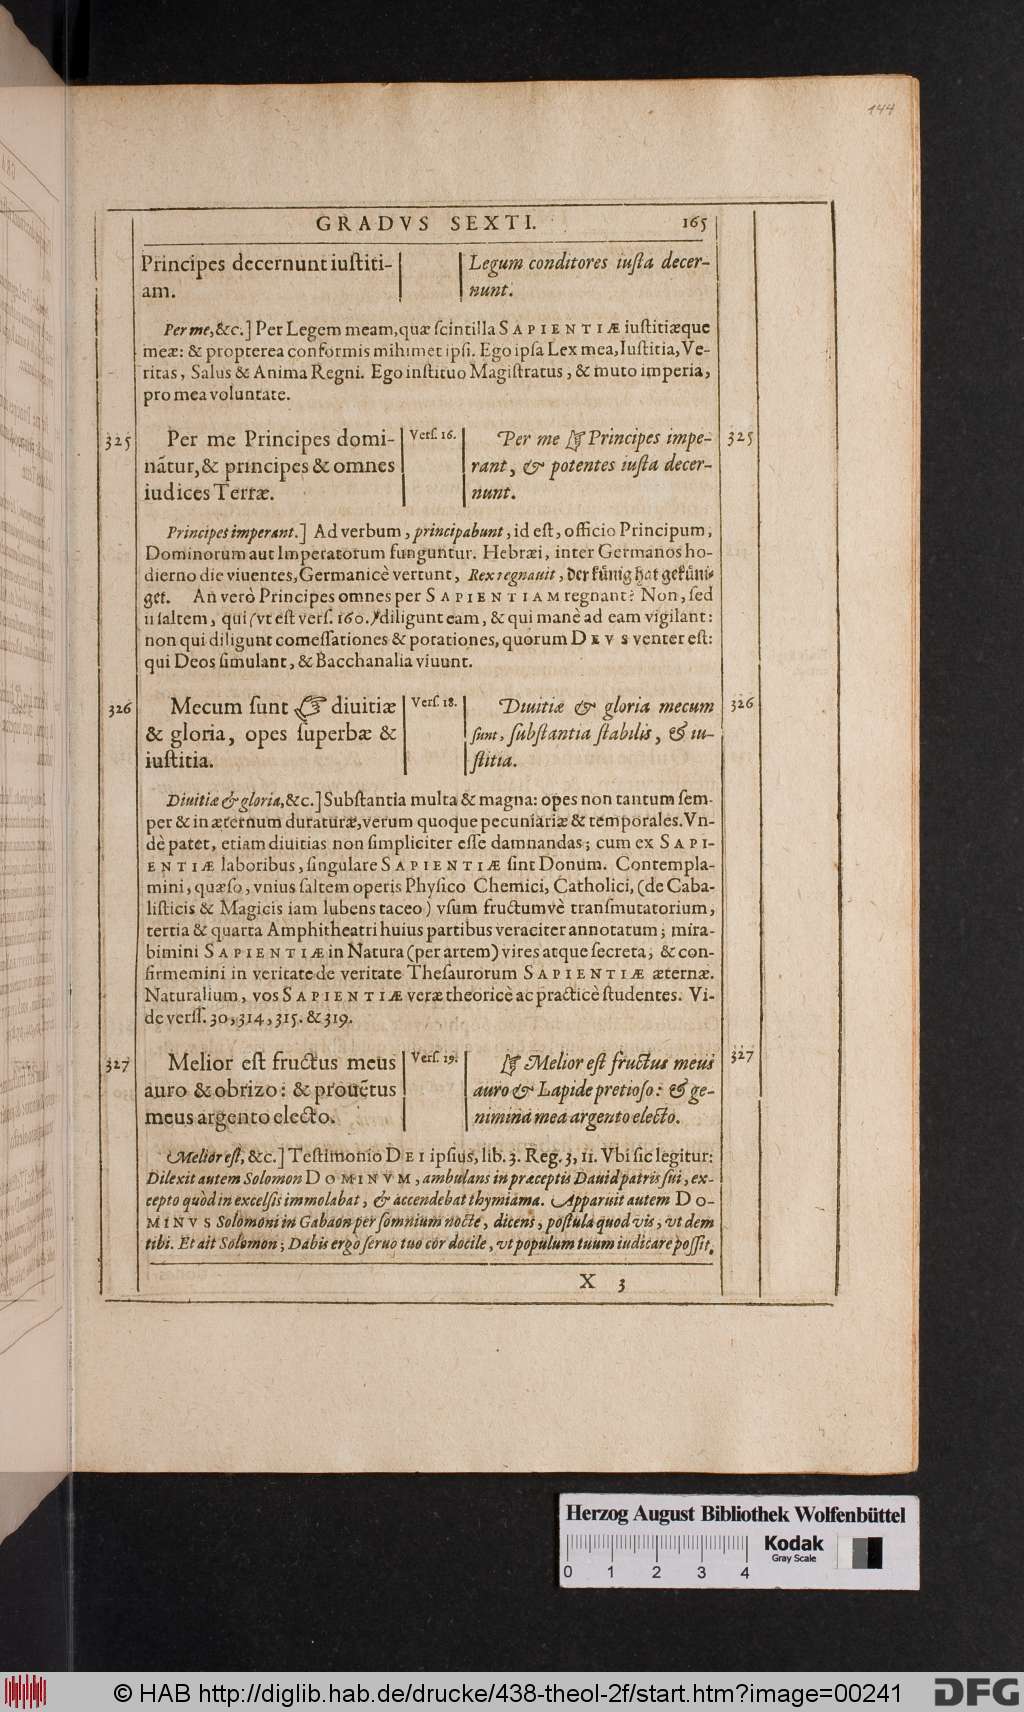 144
GRADVS SEXTI. 165
Principes decernunt iuſtiti-
am.
Legum conditores iuſta decer-
nunt.
Per me, &c.] Per Legem meam, quæ ſcintilla SAPIENTIÆ iuſtitiæque
meæ: & propterea conformis mihimet ipſi. Ego ipſa Lex mea, Iuſtitia, Ve-
ritas, Salus & Anima Regni. Ego inſtituo Magiſtratus, & muto imperia,
pro mea voluntate.
325
Per me Principes domi-
nātur, & principes & omnes
iudices Terræ.
Verſ. 16.
Per me ☞ Principes impe-
rant, & potentes iuſta decer-
nunt.
325
Principes imperant.] Ad verbum, principabunt, id eſt, officio Principum,
Dominorum aut Imperatorum funguntur. Hebræi, inter Germanos ho-
dierno die viuentes, Germanicè vertunt, Rex regnauit, der künig hat geküni-
get. An verò Principes omnes per SAPIENTIAM regnant? Non, ſed
ii ſaltem, qui (vt eſt verſ. 160.) diligunt eam, & qui manè ad eam vigilant:
non qui diligunt comeſſationes & potationes, quorum DEVS venter eſt:
qui Deos ſimulant, & Bacchanalia viuunt.
326
Mecum ſunt ☞ diuitiæ
& gloria, opes ſuperbæ &
iuſtitia.
Verſ. 18.
Diuitiæ & gloria mecum
ſunt, ſubſtantia ſtabilis, & iu-
ſtitia.
326
Diuitiæ & gloria, &c.] Subſtantia multa & magna: opes non tantum ſem-
per & in æternum duraturæ, verum quoque pecuniariæ & temporales. Vn-
dè patet, etiam diuitias non ſimpliciter eſſe damnandas; cum ex SAPI-
ENTIÆ laboribus, ſingulare SAPIENTIÆ ſint Donum. Contempla-
mini, quæſo, vnius ſaltem operis Phyſico Chemici, Catholici, (de Caba-
liſticis & Magicis iam lubens taceo) vſum fructumvè tranſmutatorium,
tertia & quarta Amphitheatri huius partibus veraciter annotatum; mira-
bimini SAPIENTIÆ in Natura (per artem) vires atque ſecreta; & con-
firmemini in veritate de veritate Theſaurorum SAPIENTIÆ æternæ.
Naturalium, vos SAPIENTIÆ veræ theoricè ac practicè ſtudentes. Vi-
de verſſ. 30, 314, 315. & 319.
327
Melior eſt fructus meus
auro & obrizo: & prouētus
meus argento electo.
Verſ. 19.
☞ Melior eſt fructus meus
auro & Lapide pretioſo: & ge-
nimina mea argento electo.
327
Melior eſt, &c.] Teſtimonio DEI ipſius, lib. 3. Reg. 3, 11. Vbi ſic legitur:
Dilexit autem Solomon DOMINVM, ambulans in præceptis Dauid patris ſui, ex-
cepto quòd in excelſis immolabat, & accendebat thymiama. Apparuit autem DO-
MINVS Solomoni in Gabaon per ſomnium nocte, dicens, poſtula quod vis, vt dem
tibi. Et ait Solomon; Dabis ergo ſeruo tuo cor docile, vt populum tuum iudicare poſſit,
X 3
Herzog August Bibliothek Wolfenbüttel
Kodak
Gray Scale
0 1 2 3 4
© HAB http://diglib.hab.de/drucke/438-theol-2f/start.htm?image=00241
DFG